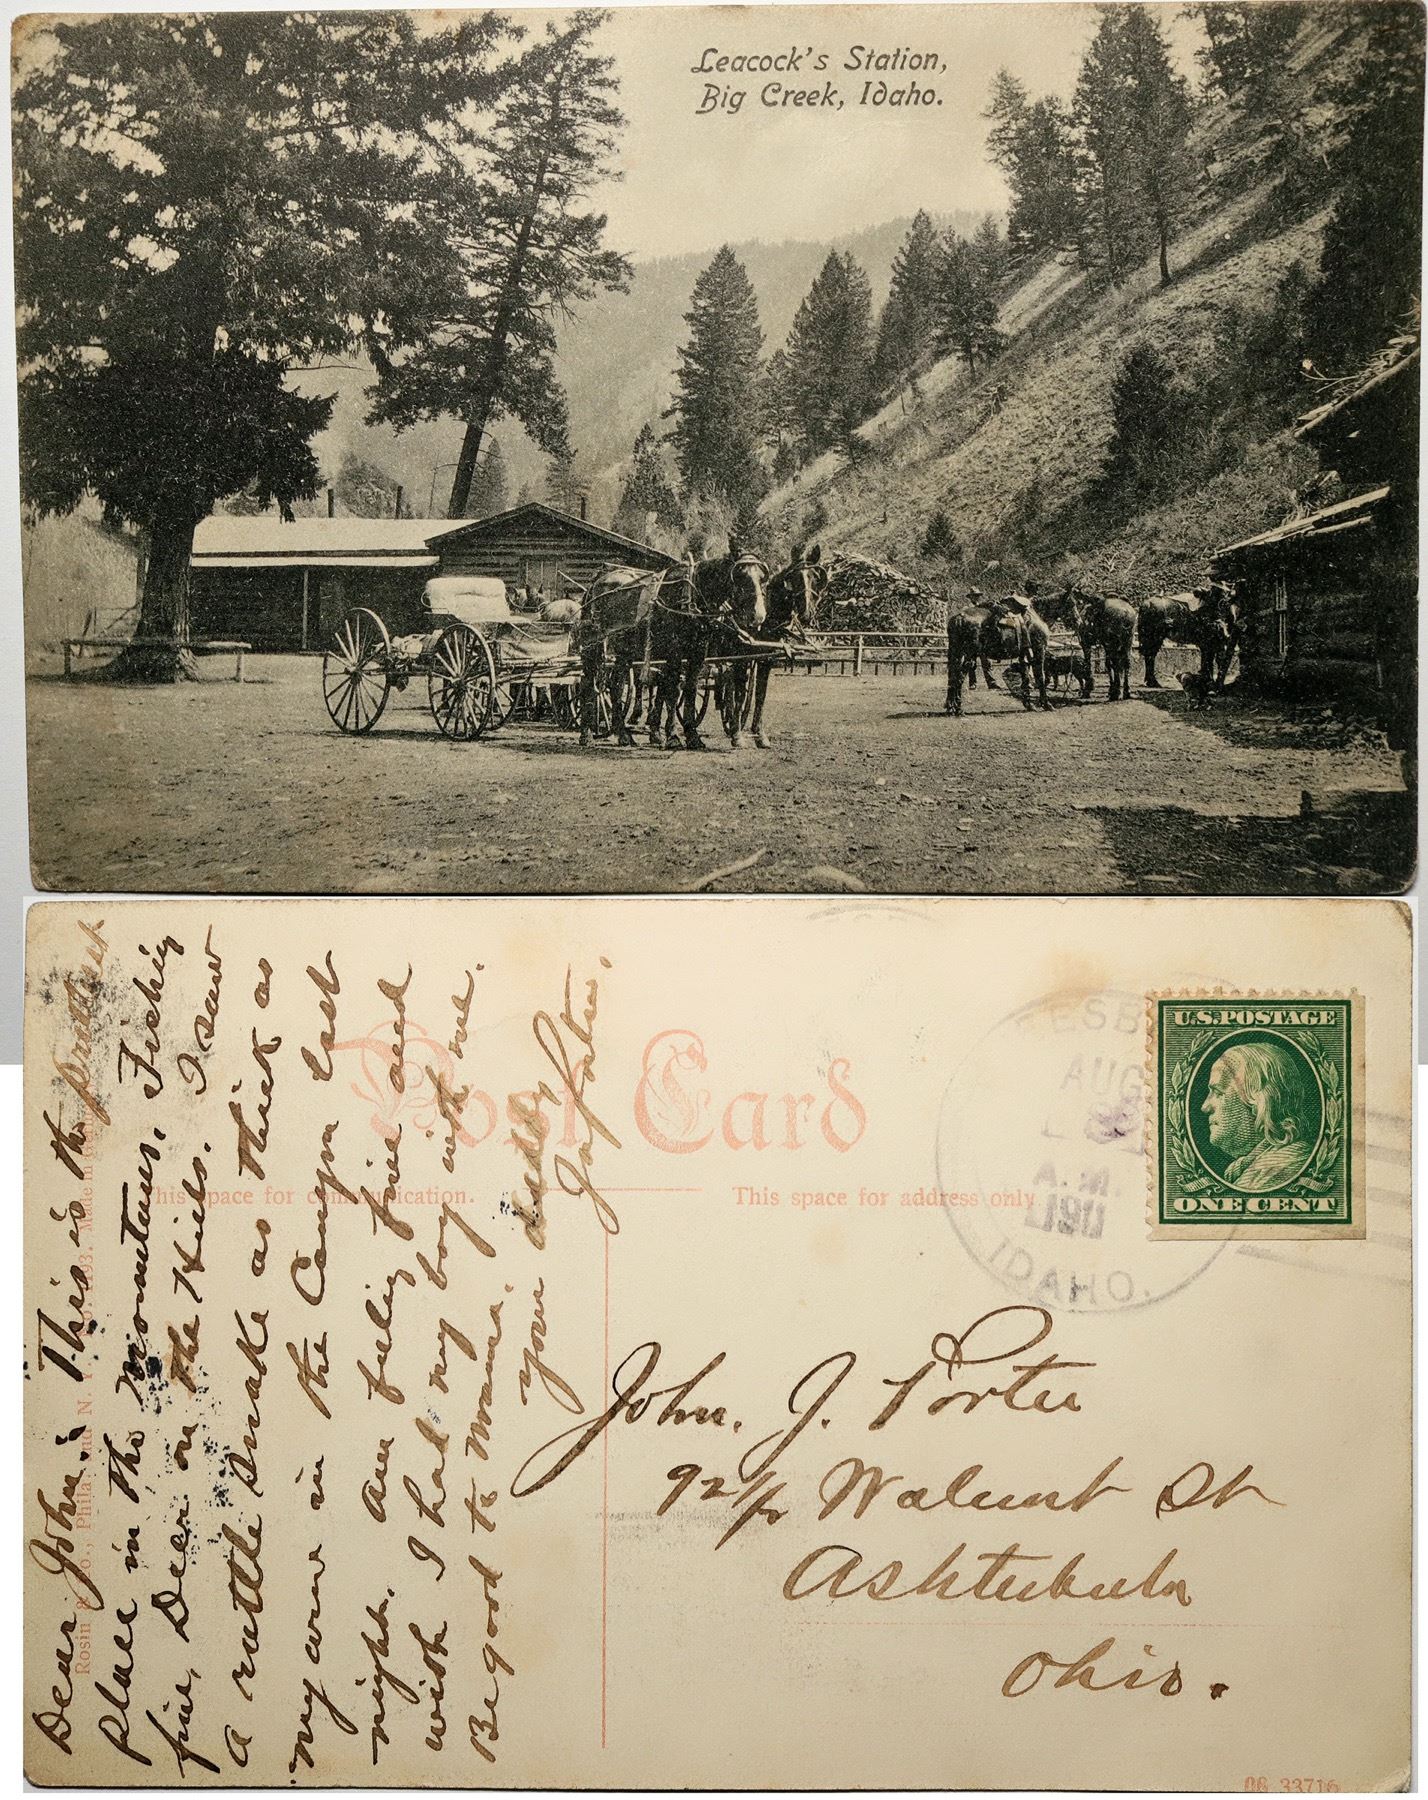 Leacock's Station,
Big Creek, Idaho.
Dear John: This is the prettiest
place in the mountains. Fishing
fine, Deer on the Hills. I saw
a rattle snake as thick as
my arm in the Canyon last
night. Am feeling fine and
wish I had my boy with me.
Be good to Mama.
your daddy
Jno Porter.
Rosin & Co., Phila. and N. Y. No. 1193. Made in
Post Card
This space for communication.
This space for address only
AUG
A.M.
191
IDAHO.
U.S. POSTAGE
ONE CENT
John. J. Porter
92½ Walnut St
Ashtubula
Ohio.
33716